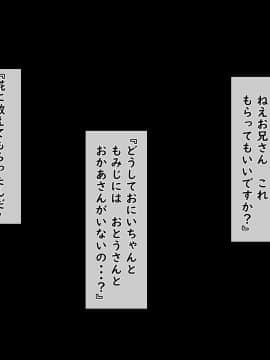 ねえお兄さん　これ
もらってもいいですか？』
『どうしておにいちゃんと
もみじには　おとうさんと
おかあさんがいないの・・・？』